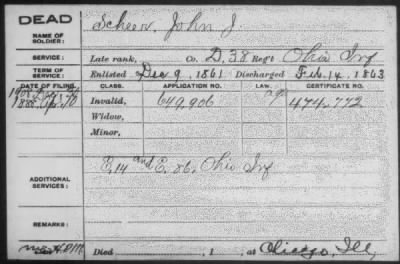 DEAD
NAME OF SOLDIER: Scheer, John J.
SERVICE: Late rank, Co. D, 38 Reg't Ohio Inf
TERM OF SERVICE: Enlisted Dec 9, 1861 Discharged Feb. 14, 1863
DATE OF FILING. CLASS. APPLICATION NO. LAW. CERTIFICATE NO.
1888, Apr. 10 Invalid, 649,906 474,772
Widow,
Minor,
ADDITIONAL SERVICES: E, 14 and E. 86, Ohio Inf
REMARKS:
Died , 1 , at Chicago, Ill,